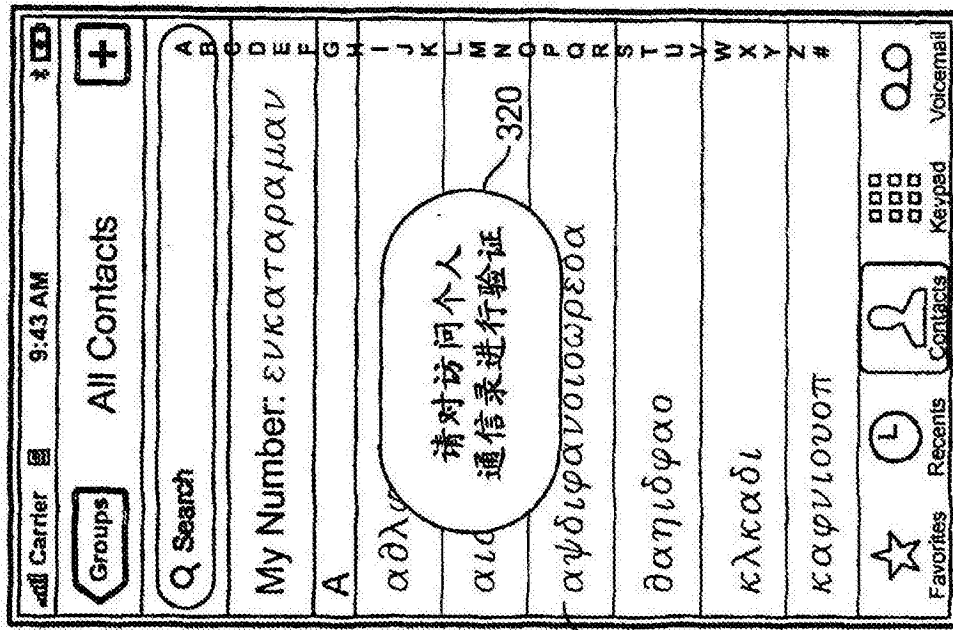 Carrier 9:43 AM
Groups All Contacts +
Search
My Number: ενκαταραμαν
A
αθλ
αι
请对访问个人
通信录进行验证
320
αψδιφανοιοωρεσα
θαηιδφαο
κλκαδι
καφνιουοπ
A
B
C
D
E
F
G
H
I
J
K
L
M
N
O
P
Q
R
S
T
U
V
W
X
Y
Z
#
Favorites Recents Contacts Keypad Voicemail